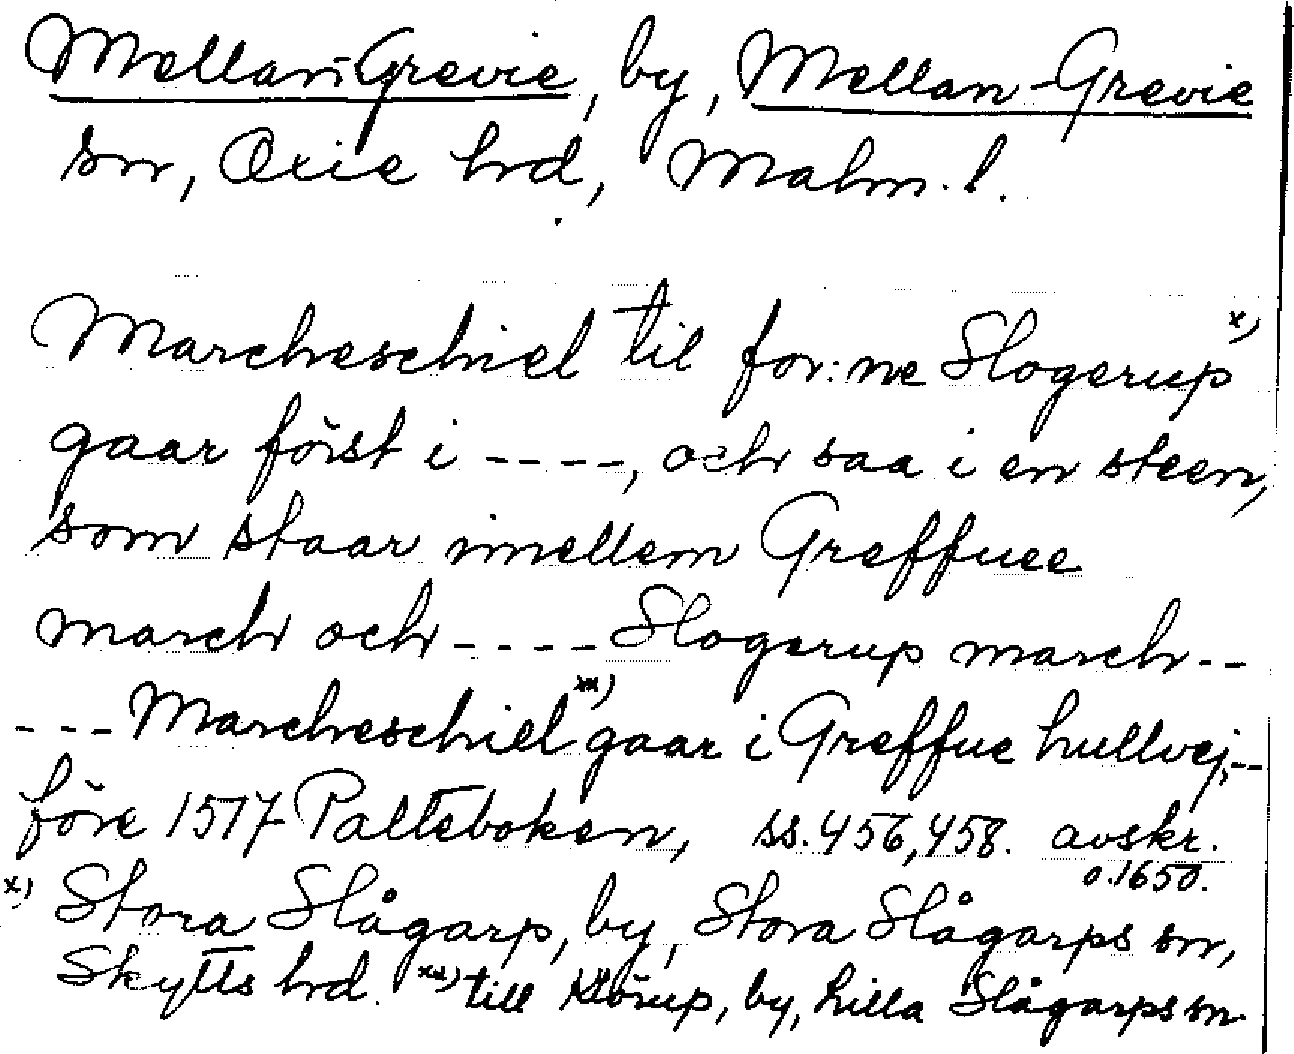 Mellan-Grevie, by, Mellan-Grevie
sn, Oxie hrd, Malm. l.
Marcheschiel til for:ne Slogerup x)
gaar först i ----, och saa i en steen,
som staar imellem Greffuee
march och ---- Slogerup march --
--- Marcheschiel xx) gaar i Greffue hullvej, --
före 1517 Palteboken, ss. 456, 458. avskr.
o. 1650.
x) Stora Slågarp, by, Stora Slågarps sn,
Skytts hrd. xx) till Klörup, by, Lilla Slågarps sn.